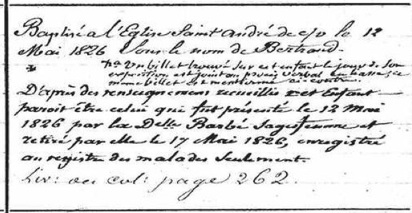 Baptisé à l'Eglise Saint André de c/o le 12
Mai 1826 sous le nom de Bertrand.
un billet trouvé sur cet enfant le jour de son
exposition est joint au procès verbal
même billet est mentionné ci-contre.
D'après des renseignemens recueillis cet Enfant
paroit être celui qui fut présenté le 12 Mai
1826 par la Delle Barbé Sagefemme et
retiré par elle le 17 Mai 1826, enregistré
au registre des malades seulement.
page 262.